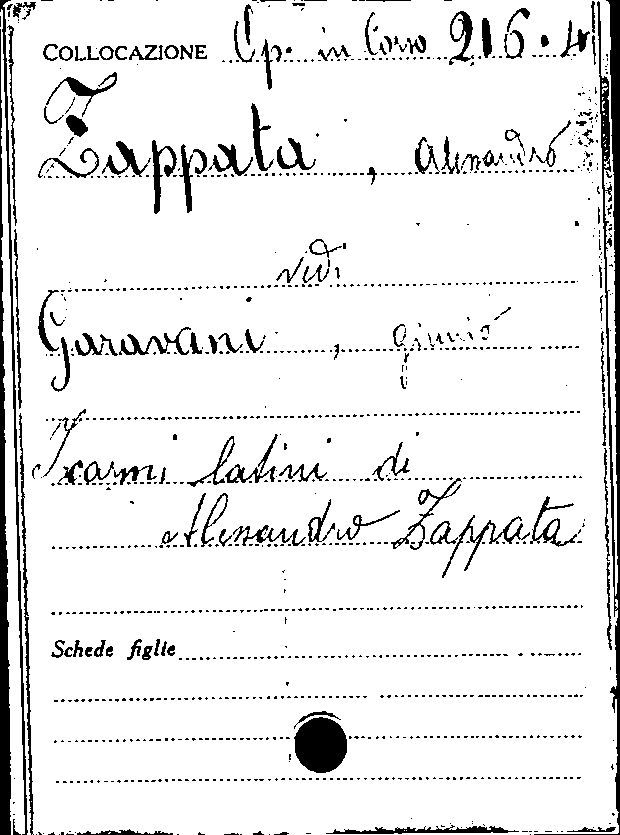 COLLOCAZIONE Op. in Corso 216.4
Zappata, Alessandro
vedi
Garavani, Giunio
I carmi latini di
Alessandro Zappata
Schede figlie